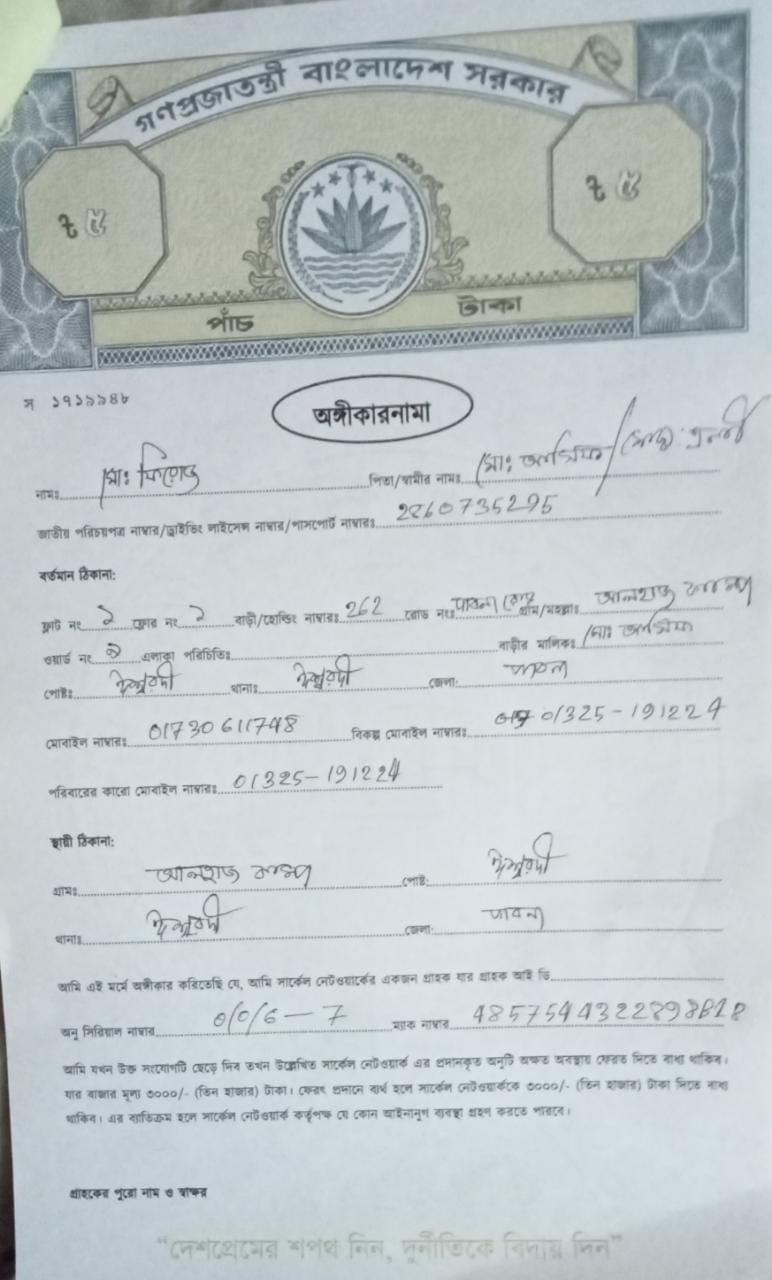 গণপ্রজাতন্ত্রী বাংলাদেশ সরকার
৳ ৫ ৳ ৫
পাঁচ টাকা
স ১৭১৯৯৪৮
অঙ্গীকারনামা
নামঃ মোঃ ফিরোজ পিতা/স্বামীর নামঃ মোঃ আসিফ / মোছাঃ
জাতীয় পরিচয়পত্র নাম্বার/ড্রাইভিং লাইসেন্স নাম্বার/পাসপোর্ট নাম্বারঃ 2860735295
বর্তমান ঠিকানা:
ফ্লাট নং ১ ফ্লোর নং ১ বাড়ী/হোল্ডিং নাম্বারঃ 262 রোড নংঃ পাবনা রোড গ্রাম/মহল্লাঃ
ওয়ার্ড নং ১ এলাকা পরিচিতিঃ বাড়ীর মালিকঃ মোঃ আসিফ
পোষ্টঃ ঈশ্বরদী থানাঃ ঈশ্বরদী জেলা: পাবনা
মোবাইল নাম্বারঃ 01730611748 বিকল্প মোবাইল নাম্বারঃ 01325-191224
পরিবারের কারো মোবাইল নাম্বারঃ 01325-191224
স্থায়ী ঠিকানা:
গ্রামঃ পোষ্ট: ঈশ্বরদী
থানাঃ ঈশ্বরদী জেলা: পাবনা
আমি এই মর্মে অঙ্গীকার করিতেছি যে, আমি সার্কেল নেটওয়ার্কের একজন গ্রাহক যার গ্রাহক আই ডি
অনু সিরিয়াল নাম্বার 0/0/6-7 ম্যাক নাম্বার
আমি যখন উক্ত সংযোগটি ছেড়ে দিব তখন উল্লেখিত সার্কেল নেটওয়ার্ক এর প্রদানকৃত অনুটি অক্ষত অবস্থায় ফেরত দিতে বাধ্য থাকিব।
যার বাজার মূল্য ৩০০০/- (তিন হাজার) টাকা। ফেরৎ প্রদানে ব্যর্থ হলে সার্কেল নেটওয়ার্ককে ৩০০০/- (তিন হাজার) টাকা দিতে বাধ্য
থাকিব। এর ব্যতিক্রম হলে সার্কেল নেটওয়ার্ক কর্তৃপক্ষ যে কোন আইনানুগ ব্যবস্থা গ্রহন করতে পারবে।
গ্রাহকের পুরো নাম ও স্বাক্ষর
"দেশপ্রেমের শপথ নিন, দুর্নীতিকে বিদায় দিন"